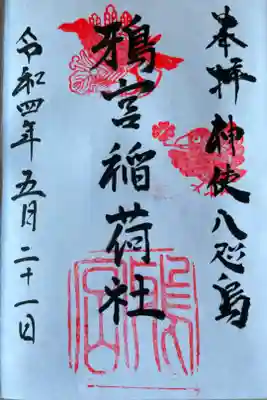 奉拝 神使八咫烏
鴉宮稲荷社
令和四年五月二十一日